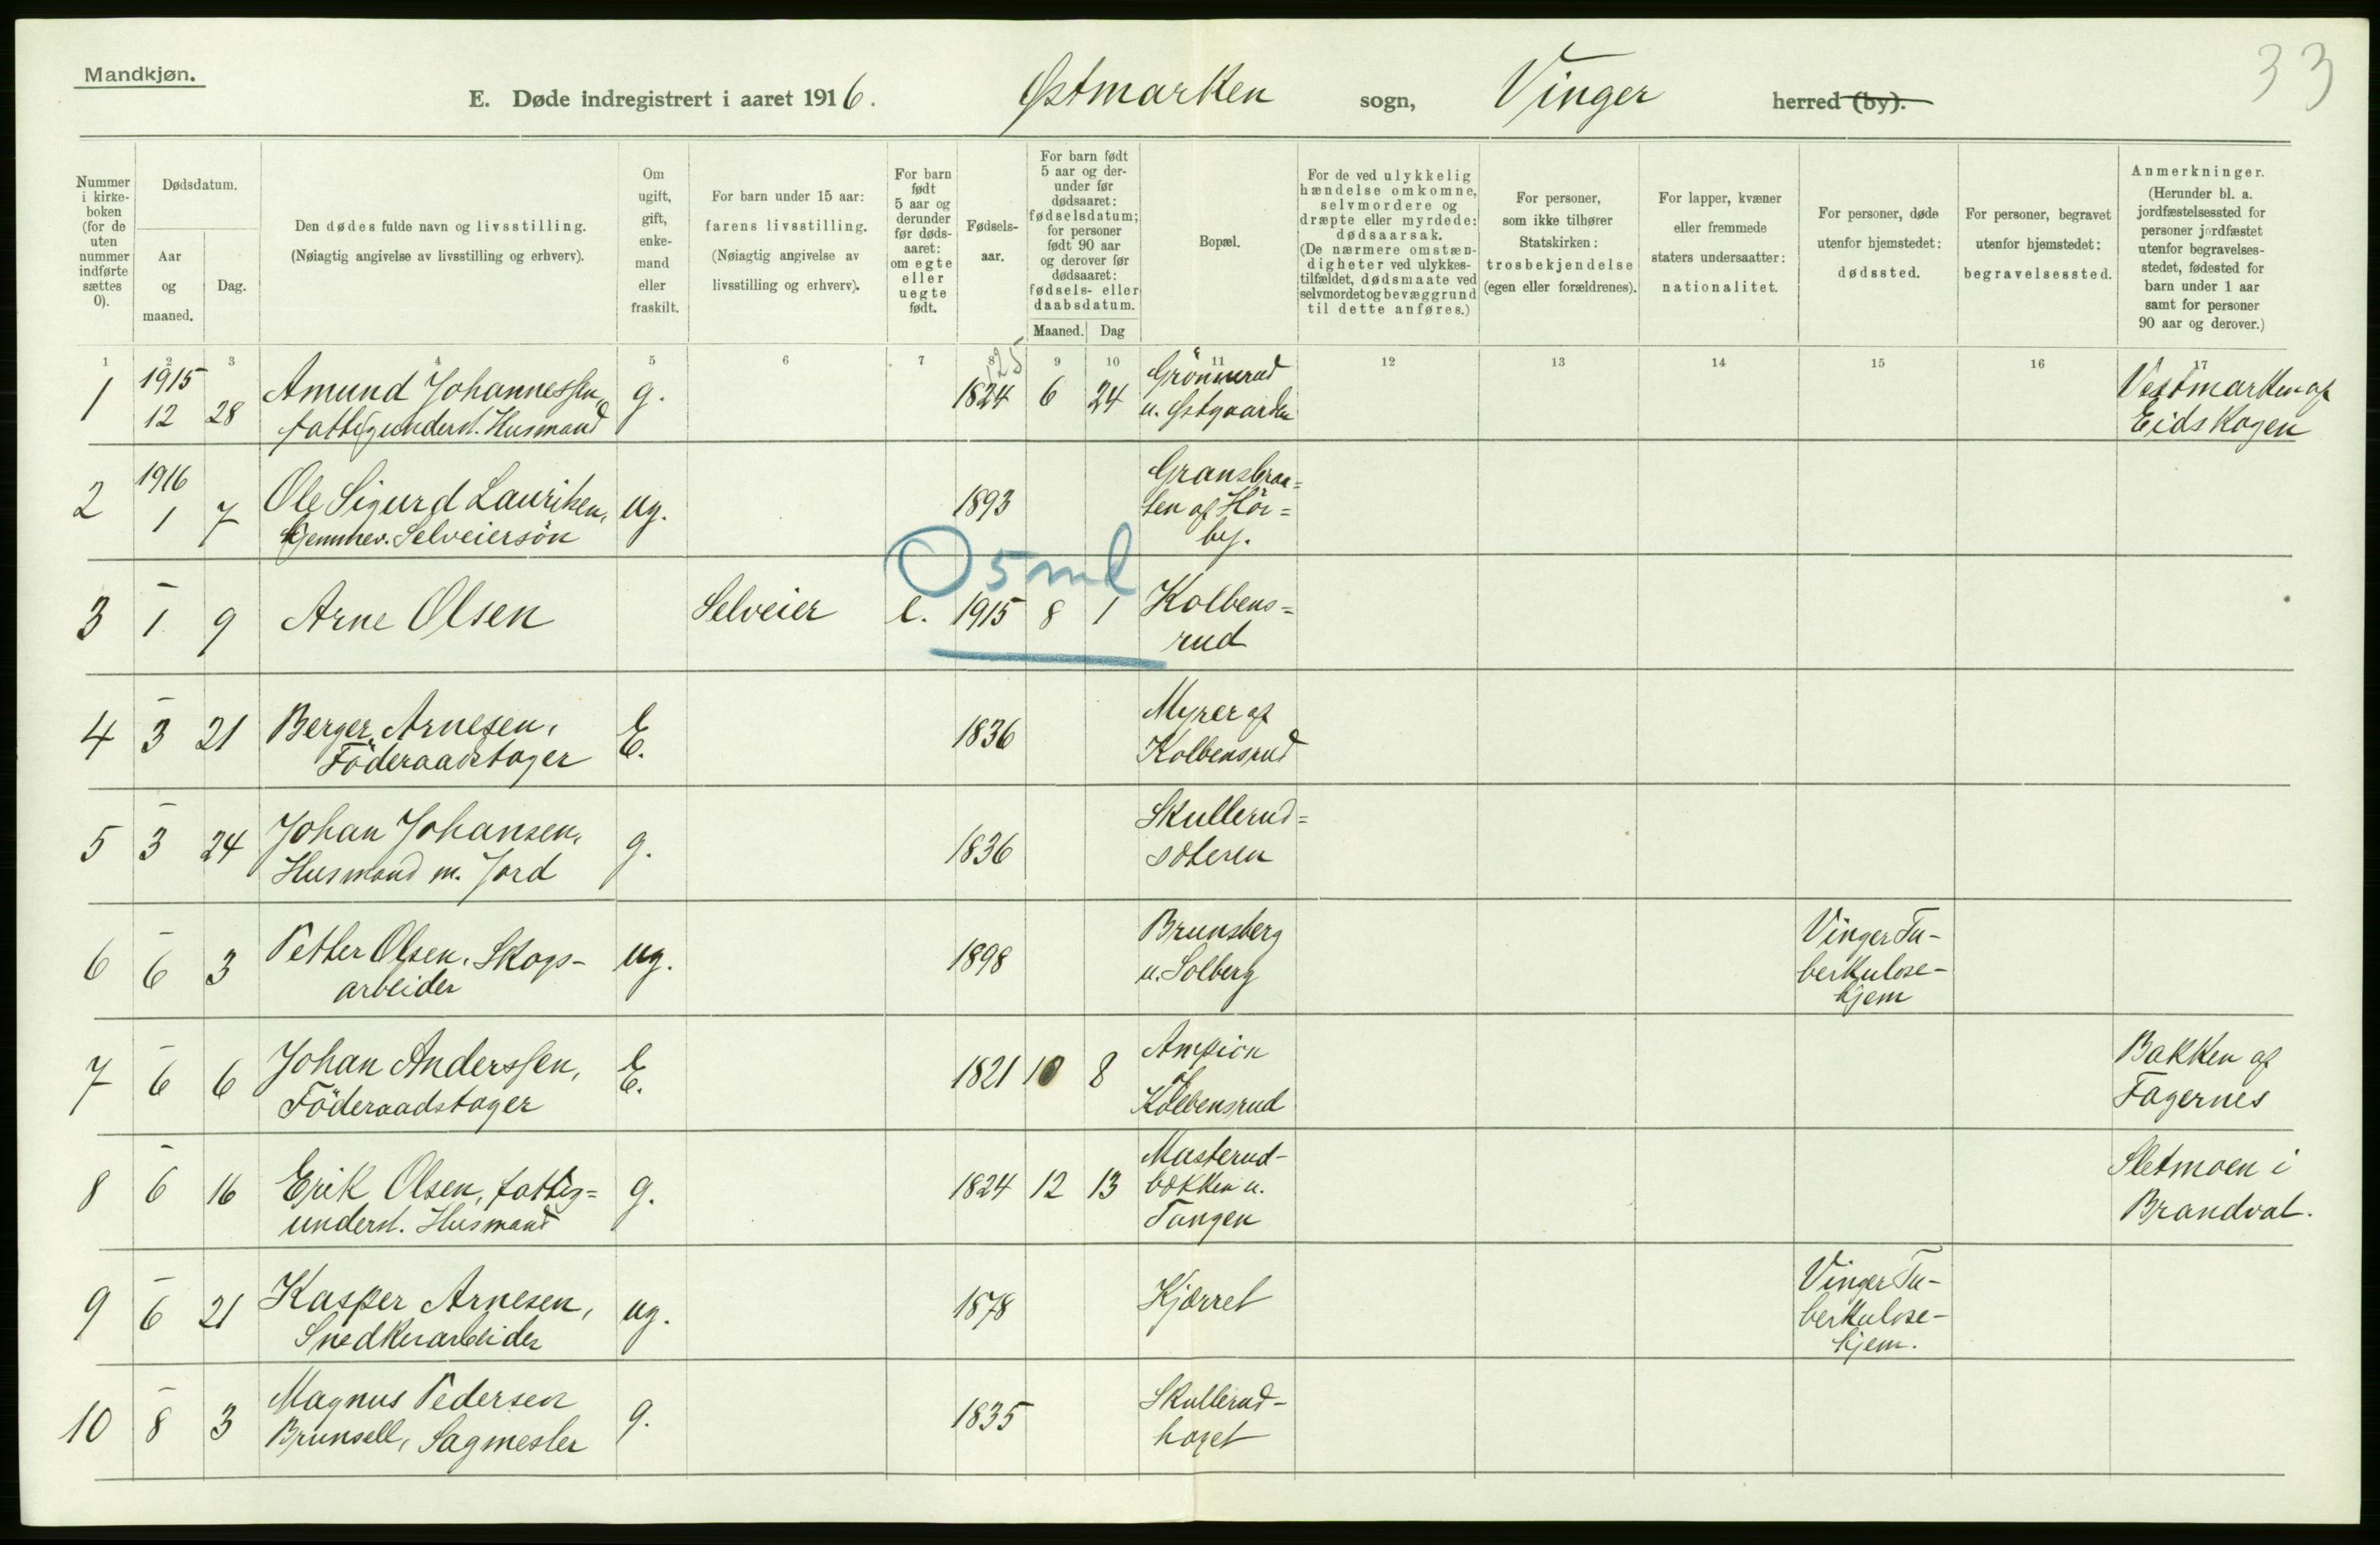 Mandkjøn.
33
E. Døde indregistrert i aaret 1916. Østmarken sogn, Vinger herred (by).
Nummer
i kirke-
boken
(for de
uten
nummer
indførte
sættes
0).
Dødsdatum.
Aar
og
maaned.
Dag.
Den dødes fulde navn og livsstilling.
(Nøiagtig angivelse av livsstilling og erhverv).
Om
ugift,
gift,
enke-
mand
eller
fraskilt.
For barn under 15 aar:
farens livsstilling.
(Nøiagtig angivelse av
livsstilling og erhverv).
For barn
født
5 aar og
derunder
før døds-
aaret:
om egte
eller
uegte
født.
Fødsels-
aar.
For barn født
5 aar og der-
under før
dødsaaret:
fødselsdatum;
for personer
født 90 aar
og derover før
dødsaaret:
fødsels- eller
daabsdatum.
Maaned. Dag
Bopæl.
For de ved ulykkelig
hændelse omkomne,
selvmordere og
dræpte eller myrdede:
dødsaarsak.
(De nærmere omstæn-
digheter ved ulykkes-
tilfældet, dødsmaate ved
selvmordet og bevæggrund
til dette anføres.)
For personer,
som ikke tilhører
Statskirken:
trosbekjendelse
(egen eller forældrenes).
For lapper, kvæner
eller fremmede
staters undersaatter:
nationalitet.
For personer, døde
utenfor hjemstedet:
dødssted.
For personer, begravet
utenfor hjemstedet:
begravelsessted.
Anmerkninger.
(Herunder bl. a.
jordfæstelsessted for
personer jordfæstet
utenfor begravelses-
stedet, fødested for
barn under 1 aar
samt for personer
90 aar og derover.)
1 2 3 4 5 6 7 8 9 10 11 12 13 14 15 16 17
1 1915 12 28 Amund Johannessen,
fattigunderst. Husmand
g. 1824 25 6 24
u. Østgaarden
Vestmarken af
Eidskogen
2 1916 1 7 Ole Sigurd Lauritsen,
hjemmev. Selveiersön
ug. 1893
ten af Hör=
by.
5 md
3 – 1 9 Arne Olsen Selveier e. 1915 8 1 Kolbens=
rud
4 – 3 21 Berger Arnesen,
Föderaadstager
E. 1836 Myrer af
Kolbensrud
5 – 3 24 Johan Johansen,
Husmand m. Jord
g. 1836 Skullerud=
sæteren
6 – 6 3 Petter Olsen, Skogs-
arbeider
ug. 1898 Brunsberg
u. Solberg
Vinger Tu-
berkulose-
hjem
7 – 6 6 Johan Anderssen,
Föderaadstager
E. 1821 10 8 Ampion
af
Kolbensrud
Bakken af
Fagernes
8 – 6 16 Erik Olsen, fattig=
underst. Husmand
g. 1824 12 13 Masterud-
bækken u.
Tangen
Sletmoen i
Brandval.
9 – 6 21 Kasper Arnesen,
Snedkerarbeider
ug. 1878 Kjærret
Vinger Tu-
berkulose-
hjem.
10 – 8 3 Magnus Pedersen
Brunsell, Sagmester
g. 1835 Skullerud-
haget